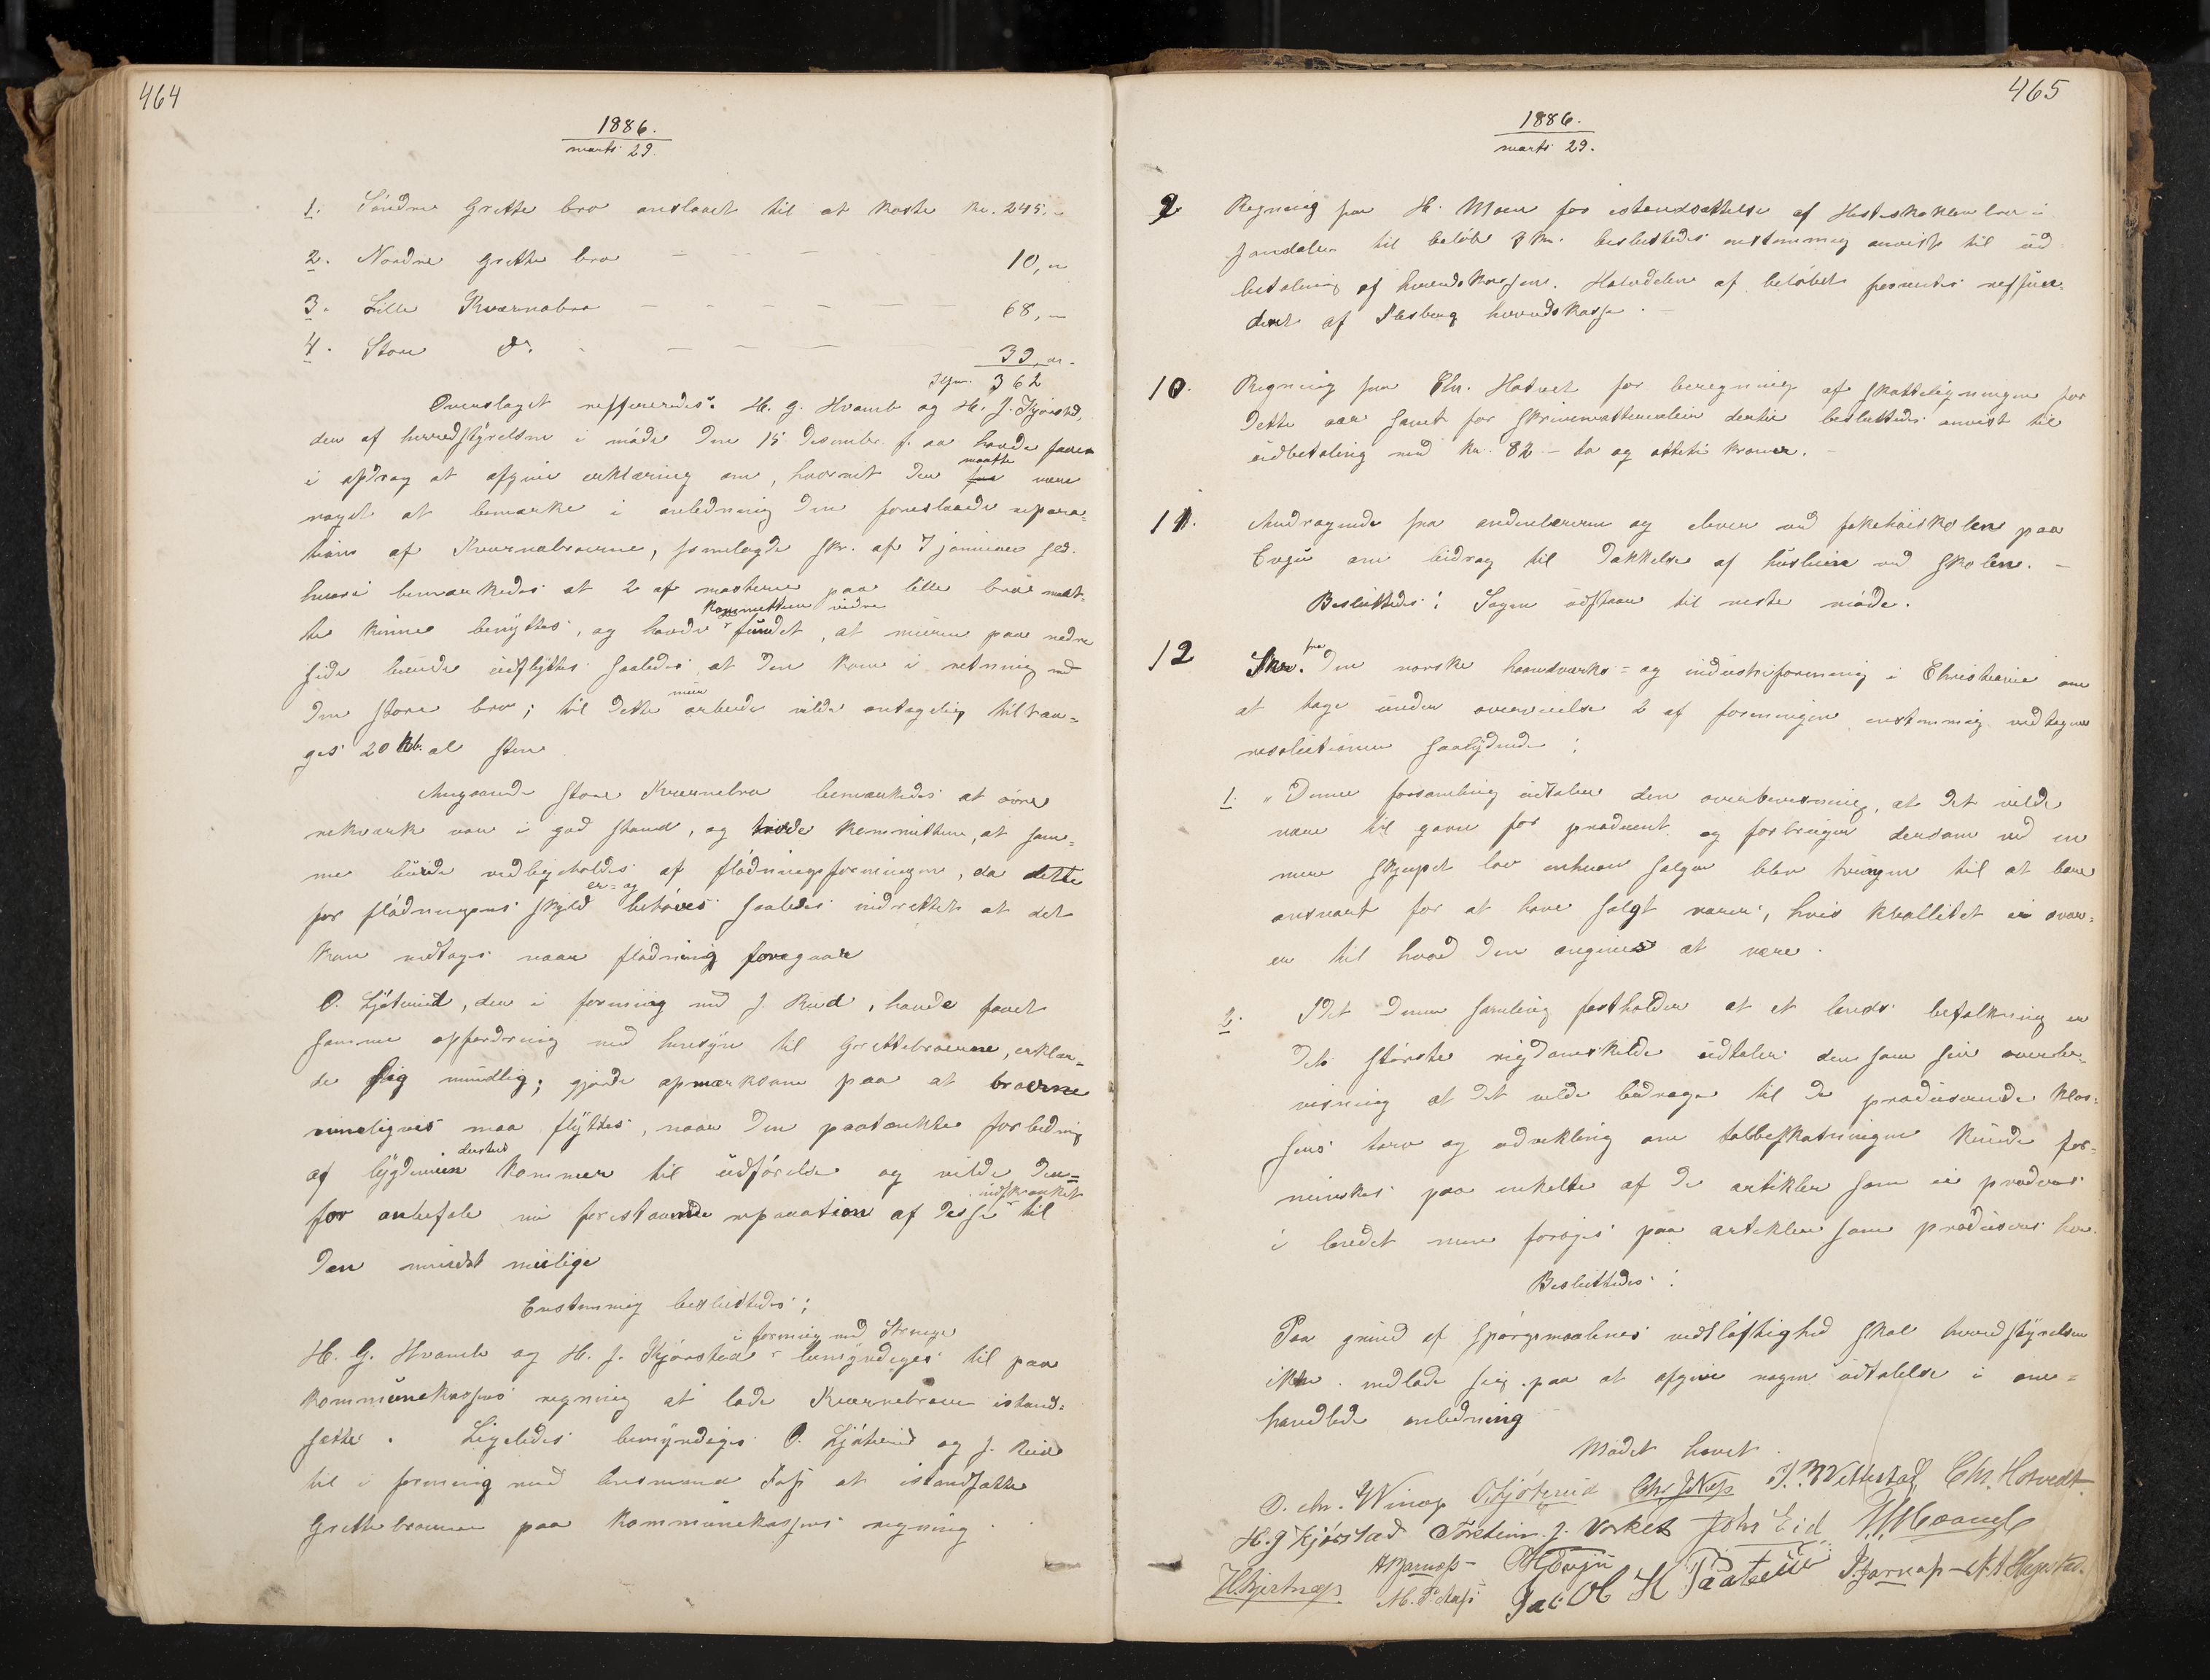 464
1886.
marts 29.
1. Søndre Grette bro anslaaet til at koste kr. 245,"
2. Nordre Grette bro - - - - 10,"
3. Lille Kvernabro - - - - 68,-
4. Store do. - - - - 39,"
Tils. 362
Overslaget reffereredes. H. G. Hvamb og H. J. Kjørstad,
der af herredstyrelsen i møde den 15 desember f. aa. havde faaet
i opdrag at afgive erklæring om, hvorvidt der maatte være
noget at bemærke i anledning den foreslaaede repara-
tion af Kvernabroerne, fremlagde skr. af 7 januar sed.
hvori bemærkedes at 2 af masterne paa lille bro maat-
te kunne benyttes, og havde kommitteen videre fundet, at muren paa nedre
side burde udflyttes saaledes at den kom i retning med
den store bro; til dette mur arbeide vilde antagelig tiltræn-
ges 20 kb. al sten
Angaaende store Kvernebro bemærkedes at øvre
rekværk var i god stand, og troede kommitteen, at sam-
me burde vedligeholdes af flødningsforeningen, da dette
for flødningens skyld er og behøves saaledes indrettet at det
kan nedtages naar flødning foregaar
O. Ljøterud, der i forening med J. Ruud, havde faaet
samme opfordring med hensyn til Grettebroerne, erklær-
de sig mundlig; gjorde opmærksom paa at broerne
rimeligvis maa flyttes, naar den paatænkte forbedring
af bygdeveien dersteds kommer til udførelse og vilde der-
for anbefale nu forestaaende reparation af disse indskrænket til
den mindst mulige
Enstemmig besluttedes:
H. G. Hvamb og H. J. Kjørstad i forening med Strange bemyndiges til paa
kommunekassens regning at lade Kvernebroen istand-
sætte. Ligeledes bemyndiges O. Ljøterud og J. Ruud
til i forening med lensmand Fass at istandsætte
Grettebroerne paa kommunekassens regning.
465
1886.
marts 29.
9 Regning fra H. Moen for istandsættelse af Hesteskoklev bro i
Jondalen til beløb 8 kr. besluttedes enstemmig anvist til ud-
betaling af herredskassen. Halvdelen af beløbet forventes reffun-
dert af Flesberg herredskasse. -
10. Regning fra Chr. Hotvet for beregning af skatteligningen for
dette aar samt for skrivematterialier dertil besluttedes anvist til
udbetaling med kr. 82 - to og ottiti kroner. -
11. Andragende fra andenlæreren og elever ved folkehøiskolen paa
Evju om bidrag til dækkelse af husleie ved skolen. -
Besluttedes: Sagen udstaar til neste møde.
12 Skr. fra Den norske haandværks- og industriforening i Christiania om
at tage under overveielse 2 af foreningen enstemmig vedtagne
resolutioner saalydende:
1. "Denne forsamling udtaler den overbevisning, at det vilde
være til gavn for producent og forbruger dersom ved en
mere skjerpet lov enhver sælger blev tvungen til at bære
ansvaret for at have solgt varer, hvis kvallitet ei svar-
er til hvad den angives at være.
2. Idet denne samling fastholder at et lands befolkning er
dets største rigdomskilde udtaler den som sin overbe-
visning at det vilde bidrage til de producerende klas-
sers tarv og udvikling om toldbeskatningen kunde for-
mindskes paa enkelte af de artikler som ei produceres
i landet men forøges paa artikler som produceres her.
Besluttedes:
Paa grund af spørgsmaalenes vidtløftighed skal herredstyrelsen
ikke indlade sig paa at afgive nogen udtalelse i om-
handlede anledning
Mødet hævet.
O. Ljøterud T. Vettestad Chr. Hotvedt.
H. J. Kjørstad Torstein J. Vorket John Eid H. G. Hvamb
H. Evju
Jacob H Taatein